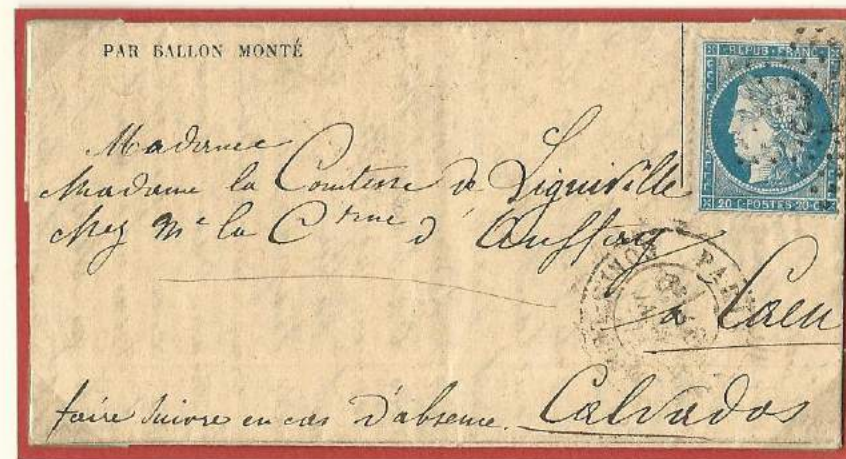 PAR BALLON MONTÉ
REPUB · FRANC
20 C · POSTES · 20 C
Madame
Madame la Comtesse de Ligniville
chez Me la Ctesse d'Auffay
à Caen
PARIS
faire suivre en cas d'absence. Calvados